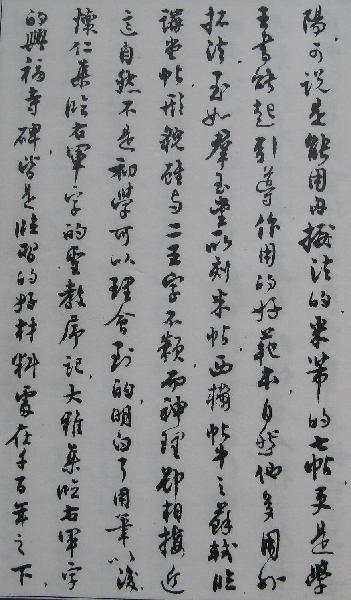 陽,可说是能用内擫法的米芾的七帖更是學
王書能起引導作用的好範本,自然他多用外
拓法,至如羣玉堂所刻米帖,西樓帖中之蘇軾临
講堂帖,形貌雖与二王字不類,而神理却相接近
這自然不是初學可以理會到的,明白了用筆以後
懷仁集临右軍字的聖教序記,大雅集临右軍字
的興福寺碑,皆是临習的好材料,雖在千百年之下,